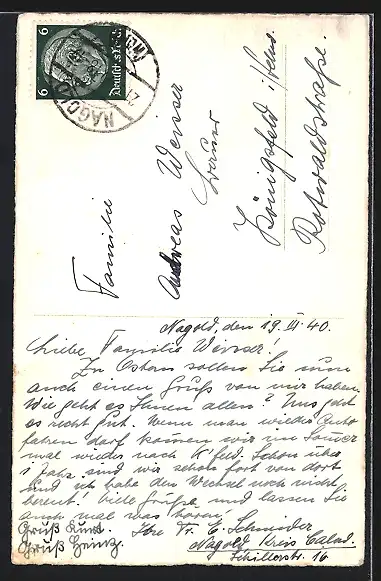 6 6
Deutsches Reich
NAGOLD
Familie
Andreas Weisser
Königsfeld i/Schw.
Rotwaldstraße.
Nagold, den 19. III. 40.
Liebe Familie Weisser!
Zu Ostern sollen Sie nun
auch einen Gruß von mir haben.
Wie geht es Ihnen allen? Uns geht
es recht gut. Wenn man wieder Auto
fahren darf kommen wir im Sommer
mal wieder nach K'feld. Schon über
1 Jahr sind wir schon fort von dort
und ich habe den Wechsel noch nicht
bereut! Viele Grüße und lassen Sie
auch mal was hören!
Gruß Kurt. Ihre Fr. E. Schneider
Gruß Heinz. Nagold Kreis Calw.
Schillerstr. 16